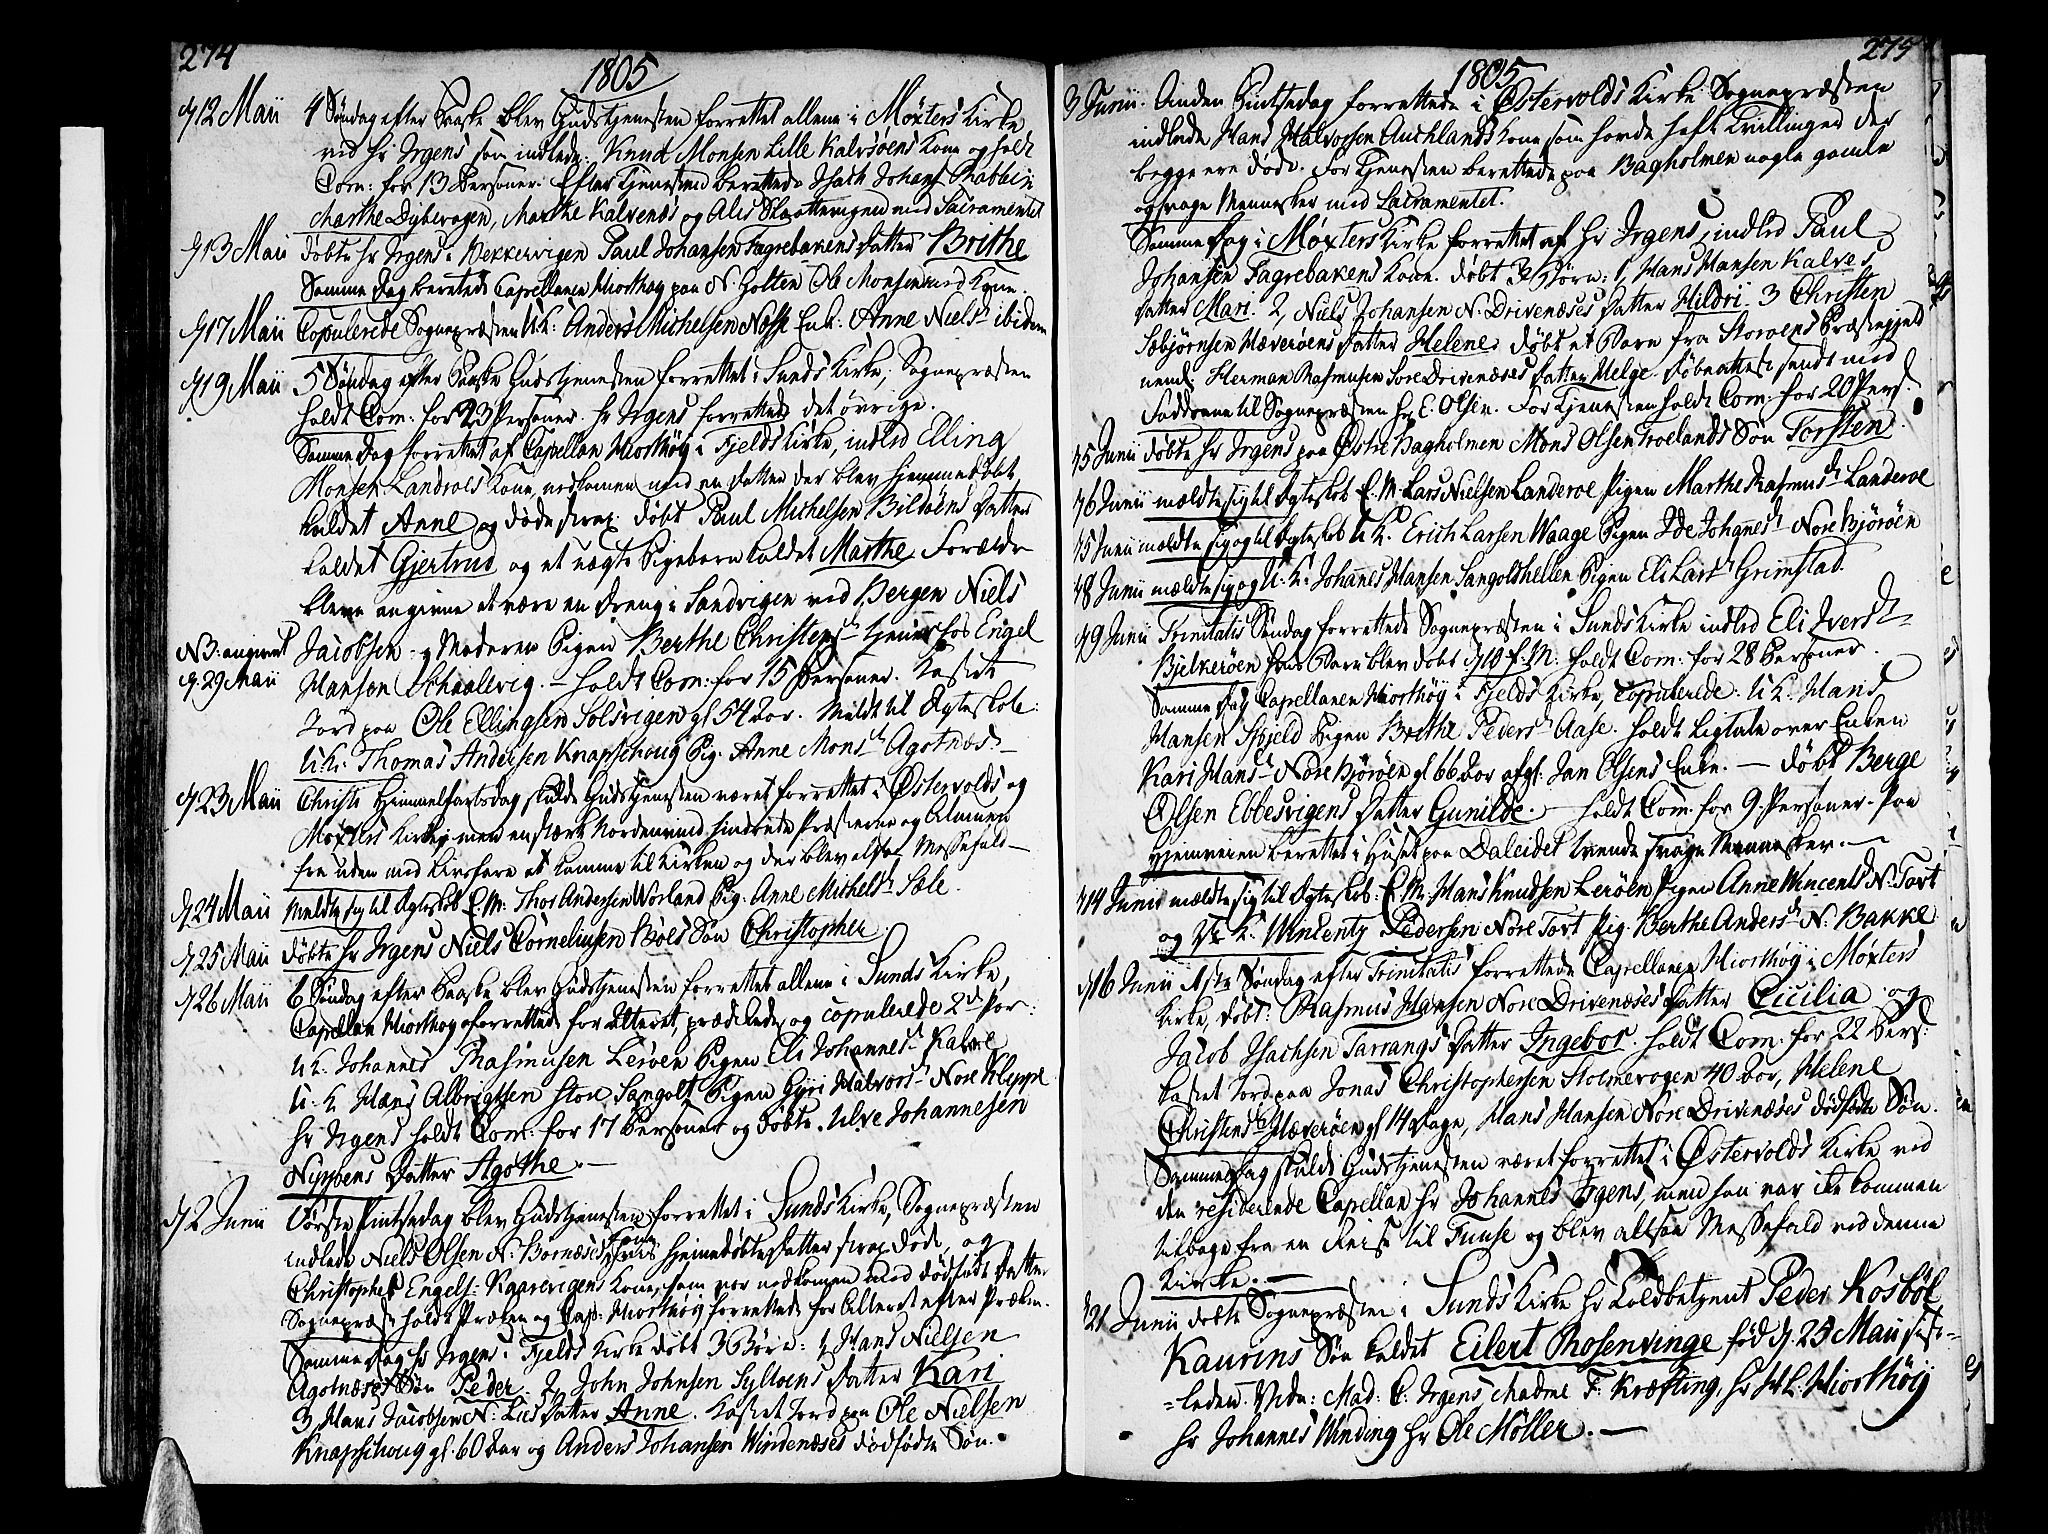 274
1805
d 12 Maii 4 Søndag efter Paaske blev Gudstjenesten forrettet allene i Møxters Kirke
ved hr Irgens som indlede: Knud Monsen Lille Kalvsøens Kone og holdt
Com: for 13 Personer. Efter tjenesten berettede Isach Johans Rabben
Marthe Dybevogen, Marthe Kalvenæs og Alis Skaattevigen med Sacramentet
d 13 Maii døbte hr Irgens i Bekkervigen Paul Johansen Fagrebakens datter Brithe
Samme dag berettede Capellanen Hiorthøy paa N. Golten Ole Monsen med Kone.
d 17 Maii Copulerede Sognepræsten U.K: Anders Michelsen Nøsse Enk: Anne Nielsd ibidem
d 19 Maii 5 Søndag efter Paaske Gudstjenesten forrettet i Sunds Kirke, Sognepræsten
holdt Com: for 23 Personer. hr Irgens forrettede det øvrige.
Samme dag forrettet af Capellan Hiorthöÿ i Fjelds Kirke, indled Elling
Monsen Landroes Kone, nedkomen med en datter der blev hjemmedøbt,
kaldet Anne og døde strax. døbt Paul Michelsen Bildøens datter
kaldet Gjertrud og et uægte Pigebarn kaldet Marthe. Forældre
bleve angivne at være en dreng i Sandvigen ved Bergen Niels
NB: angivet Jacobsen og Moderen Pigen Berthe Christensd tjener hos Engel
d. 29 Maii Hansen Schaalevig. — holdt Com: for 15 Personer. Kastet
Jord paa Ole Ellingsen Solsvigen gl 54 Aar. Meldt til Ægteskab:
U.K. Thomas Andersen Knapschoug Pig. Anne Monsd Agotnæs. —
d 23 Maii Christi Himmelfartsdag skulde Gudstjenesten været forrettet i Østervolds og
Møxters Kirker, men en stærk Nordenvind hindrede Præsterne og Almuen
fra uden med Livsfare at komme til Kirken og der blev altsaa Messefald —
d 24 Maii Meldte sig til Ægteskab E.M: Thos Andersen Norland Pig. Anne Michelsd Sæle.
d 25 Maii døbte hr Irgens Niels Corneliusen Bøes Søn Christopher.
d 26 Maii 6 Søndag efter Paaske blev Gudstjenesten forrettet allene i Sunds Kirke,
Capellan Hiorthøy forrettede for Alteret, prædikede og copulerede 2de Par:
U.K. Johannes Rasmusen Lerøen Pigen Eli Johannesd Kalve
U.K. Hans Albrigtsen Store Sangolt Pigen Gyri Halvorsd Nore Kleppe
hr Irgens holdt Com: for 17 Personer og døbte. Ulve Johannesen
Nippens Datter Agothe. —
d 2 Junii Første Pintsedag blev Gudstjenesten forrettet i Sunds Kirke, Sognepræsten
indlede Niels Olsen N. Bornæses Kone hvis hjemedøbte datter strax døde, og
Christopher Engels: Kaarevigens Kone, som var nedkomen med dødfødt datter
Sognepræst holdt Præken og Cap: Hiorthøy forrettede for Alteret efter Præken.
Samme dag hr Irgens i Fjelds Kirke døbt 3 Børn: 1, Hans Nielsen
Agotnæses Søn Peder. 2, John Johnsen Syltøens datter Kari
3, Hans Jacobsen N: Lies datter Anne. Kastet Jord paa Ole Nielsen
Knapschoug gl. 60 Aar og Anders Johansen Windenæses dødfødte Søn.
275
1805
3 Junii. Anden Pintsedag forrettede i Østervolds Kirke Sognepræsten
indlede Hans Halvorsen Auchlands Kone som havde haft Tvillinger der
begge ere døde. For tjenesten berettede paa Bagholmen nogle gamle
og svage Mennesker med Sacramentet.
Samme dag i Møxters Kirke forrettet af hr Irgens, indled Paul
Johansen Fagrebakens Kone. døbt 3 Børn: 1, Hans Hansen Kalves
datter Mari. 2, Niels Johansen N. Drivenæses datter Hildri. 3 Christen
Sæbjørnsen Hæverøens datter Helene. døbt et Barn fra Storøens Præstegjeld
nemel: Herman Rasmusen Søre Drivenæses datter Helge. døbeattest sendt med
Faddrene til Sognepræsten hr E. Olsen. For tjenesten holdt Com: for 20 Pers.
d 5 Junii døbte hr Irgens paa Østre Bagholmen Mons Olsen Troelands Søn Torsten.
d 6 Junii mældte sig til Ægteskab E.M. Lars Nielsen Landeroe Pigen Marthe Rasmusd Landeroe
d 5 Junii mældte sig og til Ægteskab U.K. Erich Larsen Waage Pigen Ide Johanesd Nore Bjørøen
d 8 Junii mældte sig og U.K. Johannes Hansen Sangoltshellen Pigen Eli Larsd Grimstad.
d 9 Junii Trinitatis Søndag forrettede Sognepræsten i Sunds Kirke indled Eli Iversd
Bjelkerøen hvis Barn blev døbt d 10 f.M. holdt Com: for 28 Personer.
Samme dag Capellanen Hiorthöy i Fjelds Kirke, copulerede U.K. Hans
Hansen Skjeld Pigen Brithe Pedersd Aase. holdt Ligtale over Enken
Kari Hansd Nore Bjørøen gl 66 Aar afgl: Jan Olsens Enke. — døbt Berge
Olsen Ebbesvigens datter Gunilde. — holdt Com: for 9 Personer. Paa
Hjemveien berettet i Huset paa Daleidet tvende svage Mennesker. —
d 14 Junii mældte sig til Ægteskab: E.M: Hans Knudsen Lerøen Pigen Anne Wincentsd N: Tort
og U. K. Wincentz Pedersen Nore Tort Pig. Berthe Andersd N. Bakke
d 16 Junii 1ste Søndag efter Trinitatis forrettede Capellanen Hiorthøÿ i Møxters
Kirke, døbt: Rasmus Hansen Nore Drivenæses datter Cicilia og
Jacob Isachsen Tarrangs datter Ingebor. holdt Com: for 22 Pers:
kastet Jord paa Jonas Christophersen Stolmevogen 40 Aar, Helene
Christensd Hæverøen gl 14 dage, Hans Hansen Nore Drivenæses dødfødte Søn.
Samme dag skulde Gudstjenesten været forrettet i Østervolds Kirke ved
den residerede Capellan hr Johannes Irgens, men han var ikke kommen
tilbage fra en Reise til Fuuse og blev altsaa Messefald ved denne
Kirke. —
d 21 Junii døbte Sognepræsten i Sunds Kirke hr Toldbetjent Peder Kosbøl
Kaurins Søn kaldet Eilert Rosenvinge fød d. 25 Maii sist-
-leden. Vidn: Mad: C. Irgens, Madme F: Kræfting, hr H.L. Hiorthöÿ
hr Johannes Winding hr Ole Möller. —